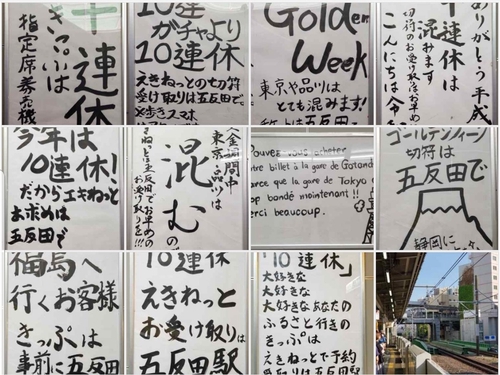 十連休
きっぷは
指定席券売機
10連休
ガチャより
10連休
えきねっとの切符
受け取りは五反田で
Golden
Week
東京や品川は
とても混みます!
ありがとう平成
十連休は
混みます
切符のお受け取りはお早め
こんにちは令
今年は
10連休!
だからエキねっと
お求めは
五反田で
GW期間中
東京・品川は
混むの
Pouvez vous acheter
tre billet à la gare de Gotanda
arce que la gare de Tokyo
op bondé maintenant!!
erci beaucoup.
ゴールデンウィーク
切符は
五反田で
静岡に
福島へ
行くお客様
きっぷは
事前に五反田
10連休
えきねっと
お受け取りは
五反田駅
「10連休」
大好きな
大好きな
大好きなあなたの
ふるさと行きの
きっぷは
えきねっとで予約
受取りは五反田